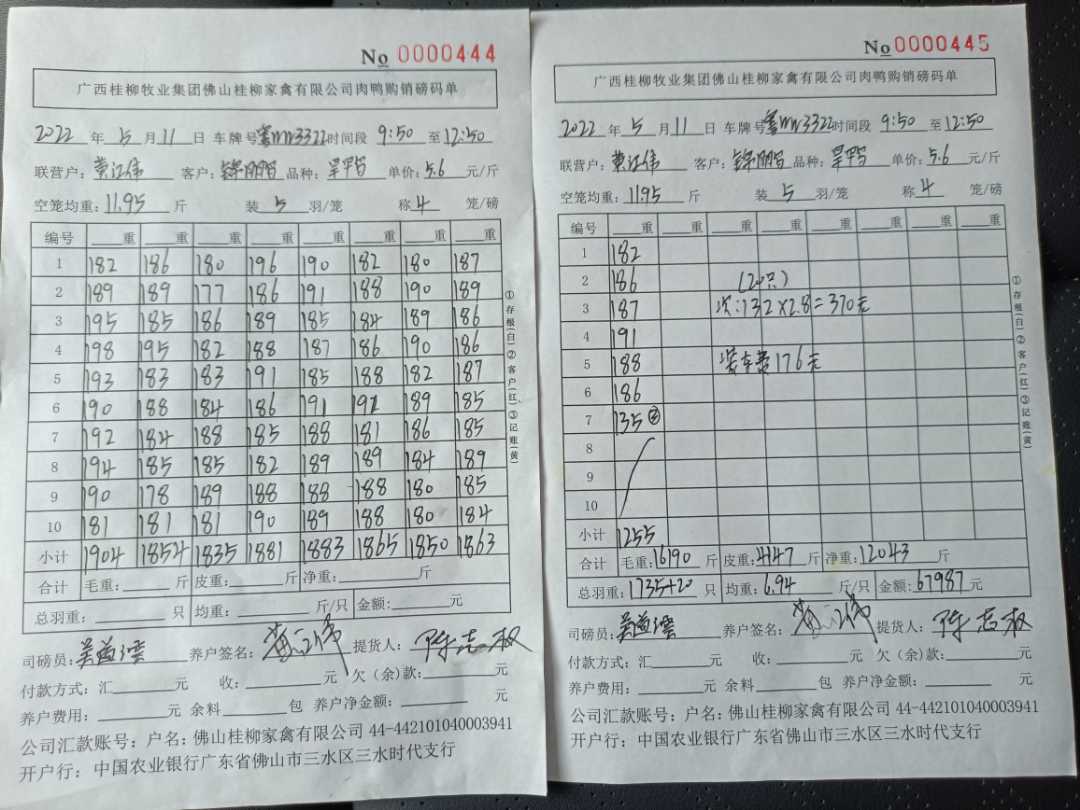 No 0000444
广西桂柳牧业集团佛山桂柳家禽有限公司肉鸭购销磅码单
2022 年 5 月 11 日 车牌号 3322 时间段 9:50 至 12:50
联营户: 黄江伟 客户: 品种: 单价: 5.6 元/斤
空笼均重: 11.95 斤 装 5 羽/笼 称 4 笼/磅
编号 重 重 重 重 重 重 重 重
1 182 186 180 196 190 182 180 187
2 189 189 177 186 191 188 190 189
3 195 185 186 189 185 184 189 186
4 198 195 182 188 187 186 190 186
5 193 183 183 191 185 188 182 187
6 190 188 184 186 191 191 189 185
7 192 184 188 185 188 181 186 185
8 194 185 185 182 189 189 184 189
9 190 178 189 188 188 188 180 185
10 181 181 181 190 189 188 180 184
小计 1904 1854 1835 1881 1883 1865 1850 1863
合计 毛重: 斤 皮重: 斤 净重: 斤
总羽重: 只 均重: 斤/只 金额: 元
司磅员: 养户签名: 提货人: 陈志权
付款方式: 汇 元 收: 元 欠(余)款: 元
养户费用: 元 余料 包 养户净金额: 元
公司汇款账号: 户名: 佛山桂柳家禽有限公司 44-442101040003941
开户行: 中国农业银行广东省佛山市三水区三水时代支行
①存根(白)②客户(红)③记账(黄)
No 0000445
广西桂柳牧业集团佛山桂柳家禽有限公司肉鸭购销磅码单
2022 年 5 月 11 日 车牌号 3322 时间段 9:50 至 12:50
联营户: 黄江伟 客户: 品种: 单价: 5.6 元/斤
空笼均重: 11.95 斤 装 5 羽/笼 称 4 笼/磅
编号 重 重 重 重 重 重 重 重
1 182
2 186 (20只)
3 187 次:132×2.8=370元
4 191
5 188 装车费176元
6 186
7 135 ③
8
9
10
小计 1255
合计 毛重: 16190 斤 皮重: 4147 斤 净重: 12043 斤
总羽重: 1735+20 只 均重: 6.94 斤/只 金额: 67987 元
司磅员: 养户签名: 提货人: 陈志权
付款方式: 汇 元 收: 元 欠(余)款: 元
养户费用: 元 余料 包 养户净金额: 元
公司汇款账号: 户名: 佛山桂柳家禽有限公司 44-442101040003941
开户行: 中国农业银行广东省佛山市三水区三水时代支行
①存根(白)②客户(红)③记账(黄)